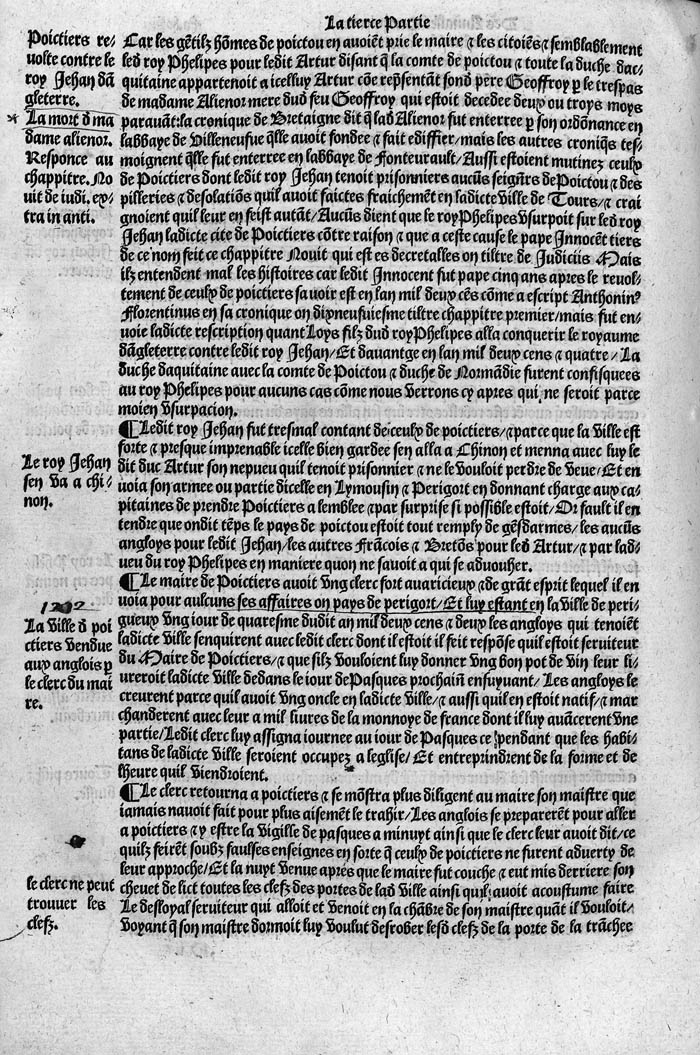 La tierce Partie
Poictiers re⸗
volte contre le
roy Jehan dā
gleterre.
* La mort d ma
dame alienor.
Responce au
chappitre. No
uit de iudi. ex⸗
tra in anti.
Car les gētilz hōmes de poictou en auoiēt prie le maire ⁊ les citoiēs ⁊ semblablement
led roy Phelipes pour ledit Artur disant q̄ la comte de poictou ⁊ toute la duche dac⸗
quitaine appartenoit a icelluy Artur cōe rep̄sentāt sond pere Geoffroy p̱ le trespas
de madame Alienor mere dud feu Geoffroy qui estoit decedee deux ou troys moys
parauāt:la cronique de Bretaigne dit q̄ lad Alienor fut enterree p̱ son ordōnance en
labbaye de Villeneufue q̄lle auoit fondee ⁊ fait ediffier/mais les autres croniq̄s tes⸗
moignent q̄lle fut enterree en labbaye de Fonteurault/Aussi estoient mutinez ceulx
de Poictiers dont ledit roy Jehan tenoit prisonniers aucūs seign̄rs de Poictou ⁊ des
pilleries ⁊ desolatiōs quil auoit faictes fraichemēt en ladicte ville de Tours/⁊ crai
gnoient quil leur en feist autāt/Aucūs dient que le roy Phelipes vsurpoit sur led roy
Jehan ladicte cite de Poictiers cōtre raison ⁊ que a ceste cause le pape Innocēt tiers
de ce nom feit ce chappitre Nouit qui est es decretalles on tiltre de Judiciis Mais
ilz entendent mal les histoires car ledit Innocent fut pape cinq ans apres le reuol⸗
tement de ceulx de poictiers sauoir est en lan mil deux cēs cōme a escript Anthoninꝰ
Florentinus en sa cronique on dixneufuiesme tiltre chappitre premier/mais fut en⸗
uoie ladicte rescription quant Loys filz dud roy Phelipes alla conquerir le royaume
dāgleterre contre ledit roy Jehan/Et dauantge en lan mil deux cens ⁊ quatre/La
duche daquitaine auec la comte de Poictou ⁊ duche de Normādie furent confisquees
au roy Phelipes pour aucuns cas cōme nous verrons cy apres qui ne seroit parce
moien vsurpacion.
Le roy Jehan
sen va a chi⸗
non.
¶Ledit roy Jehan fut tresmal contant de ceulx de poictiers/⁊ parce que la ville est
forte ⁊ presque imprenable icelle bien gardee sen alla a Chinon et menna auec luy le
dit duc Artur son nepueu quil tenoit prisonnier ⁊ ne le vouloit perdre de veue/Et en
uoia son armee ou partie dicelle en Lymousin ⁊ Perigort en donnant charge aux ca⸗
pitaines de prendre Poictiers a lemblee ⁊ par surprise si possible estoit/Or fault il en
tendre que ondit tēps le pays de poictou estoit tout remply de gēsdarmes/les aucūs
angloys pour ledit Jehan/les autres Frācois ⁊ Bretōs pour led Artur/⁊ par lad⸗
ueu du roy Phelipes en maniere quon ne sauoit a qui se aduouher.
1202
La ville d poi
ctiers vendue
aux anglois p̱
le clerc du mai
re.
¶Le maire de Poictiers auoit vng clerc fort auaricieux ⁊ de grāt esprit lequel il en
uoia pour aulcuns ses affaires on pays de perigort/Et luy estant en la ville de peri⸗
gueux vng iour de quaresme dudit an mil deux cens ⁊ deux les angloys qui tenoiēt
ladicte ville senquirent auec ledit clerc dont il estoit il feit respōse quil estoit seruiteur
du Maire de Poictiers/⁊ que silz vouloient luy donner vng bon pot de vin leur li⸗
ureroit ladicte ville dedans le iour de Pasques prochaiñ ensuyuant/Les angloys le
creurent parce quil auoit vng oncle en ladicte ville/⁊ aussi quil en estoit natif/⁊ mar
chanderent auec leur a mil liures de la monnoye de france dont il luy auācerent vne
partie/Ledit clerc luy assigna iournee au iour de Pasques ce pendant que les habi⸗
tans de ladicte ville seroient occupez a leglise/Et entreprindrent de la forme et de
lheure quil viendroient.
¶Le clerc retourna a poictiers ⁊ se mōstra plus diligent au maire son maistre que
iamais nauoit fait pour plus aisemēt le trahir/Les anglois se preparerēt pour aller
a poictiers ⁊ y estre la vigille de pasques a minuyt ainsi que le clerc leur auoit dit/ce
quilz feirēt soubz faulses enseignes en sorte q̄ ceulx de poictiers ne furent aduerty de
leur approche/Et la nuyt venue apres que le maire fut couche ⁊ eut mis derriere son
le clerc ne peut
trouuer les
clefz.
cheuet de lict toutes les clefz des portes de lad ville ainsi quil auoit acoustume faire
Le desloyal seruiteur qui alloit et venoit en la chābre de son maistre quāt il vouloit/
voyant q̄ son maistre dormoit luy voulut desrober lesd clefz de la porte de la trāchee